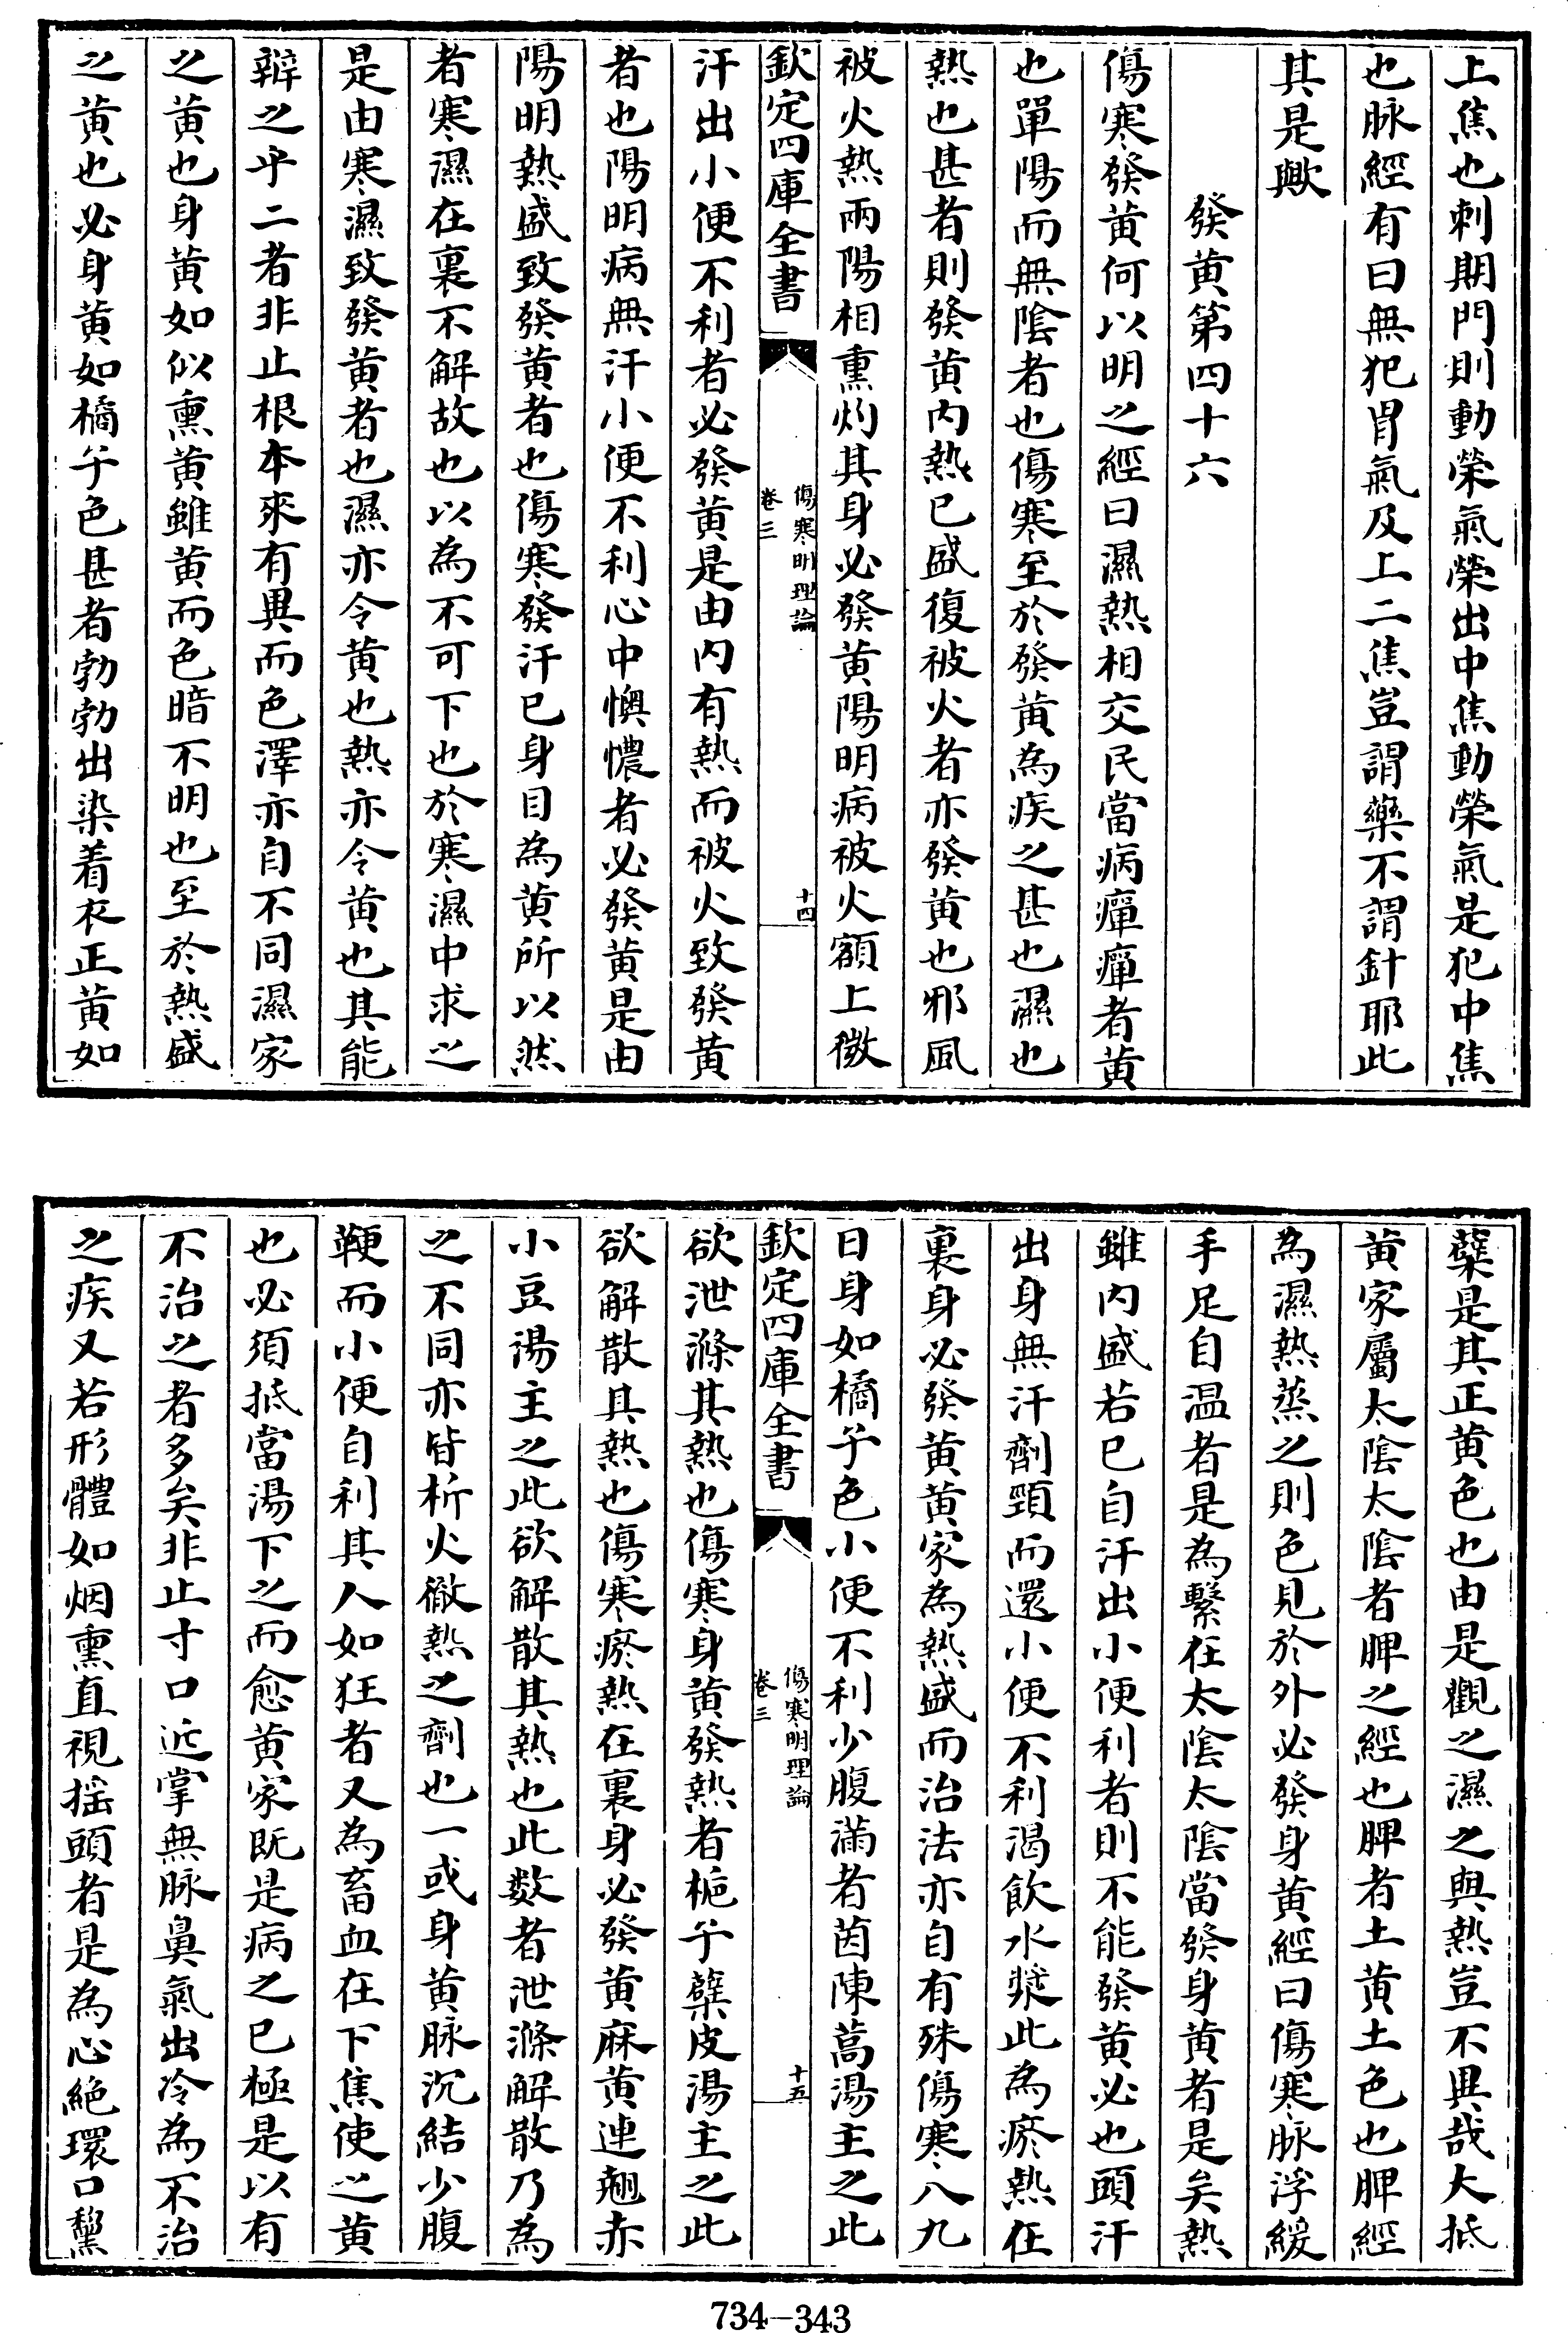 上焦也刺期門則動榮氣榮出中焦動榮氣是犯中焦
也脉經有曰無犯胃氣及上二焦豈謂藥不謂針耶此
其是歟
發黄第四十六
傷寒發黄何以明之經曰濕熱相交民當病癉癉者黄
也單陽而無隂者也傷寒至於發黄為疾之甚也濕也
熱也甚者則發黄内熱已盛復被火者亦發黄也邪風
被火熱兩陽相熏灼其身必發黄陽明病被火額上微
欽定四庫全書
傷寒明理論
卷三
十四
汗出小便不利者必發黄是由内有熱而被火致發黄
者也陽明病無汗小便不利心中懊憹者必發黄是由
陽明熱盛致發黄者也傷寒發汗已身目為黄所以然
者寒濕在裏不解故也以為不可下也於寒濕中求之
是由寒濕致發黄者也濕亦令黄也熱亦令黄也其能
辯之乎二者非止根本來有異而色澤亦自不同濕家
之黄也身黄如似熏黄雖黄而色暗不明也至於熱盛
之黄也必身黄如橘子色甚者勃勃出染着衣正黄如
蘗是其正黄色也由是觀之濕之與熱豈不異哉大抵
黄家屬太隂太隂者脾之經也脾者土黄土色也脾經
為濕熱蒸之則色見於外必發身黄經曰傷寒脉浮緩
手足自温者是為繫在太隂太隂當發身黄者是矣熱
雖内盛若已自汗出小便利者則不能發黄必也頭汗
出身無汗劑頸而還小便不利渴飲水漿此為瘀熱在
裏身必發黄黄家為熱盛而治法亦自有殊傷寒八九
日身如橘子色小便不利少腹滿者茵陳蒿湯主之此
欽定四庫全書
傷寒明理論
卷三
十五
欲泄滌其熱也傷寒身黄發熱者梔子蘗皮湯主之此
欲解散其熱也傷寒瘀熱在裏身必發黄麻黄連翹赤
小豆湯主之此欲解散其熱也此数者泄滌解散乃為
之不同亦皆析火徹熱之劑也一或身黄脉沉結少腹
鞕而小便自利其人如狂者又為畜血在下焦使之黄
也必須抵當湯下之而愈黄家既是病之已極是以有
不治之者多矣非止寸口近掌無脉鼻氣出冷為不治
之疾又若形體如烟熏直視揺頭者是為心絶環口黧
734-343